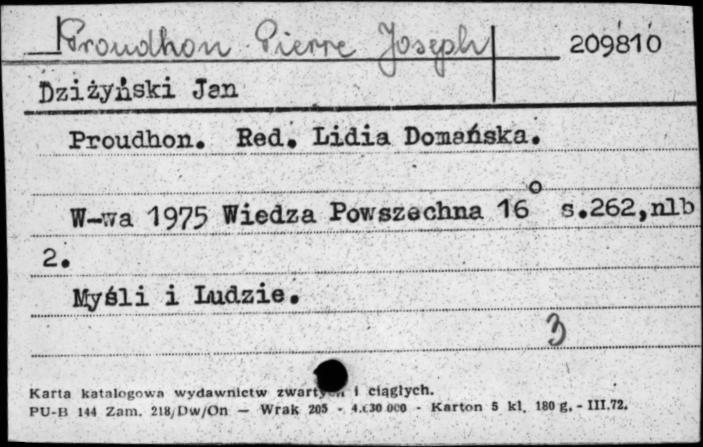 Proudhon Pierre Joseph 209810
Dziżyński Jan
Proudhon. Red. Lidia Domańska.
W-wa 1975 Wiedza Powszechna 16° s.262,nlb
2.
Myśli i Ludzie.
3
Karta katalogowa wydawnictw zwartych i ciągłych.
PU-B 144 Zam. 218/Dw/On — Wrak 205 - 4.030 000 - Karton 5 kl. 180 g. - III.72.